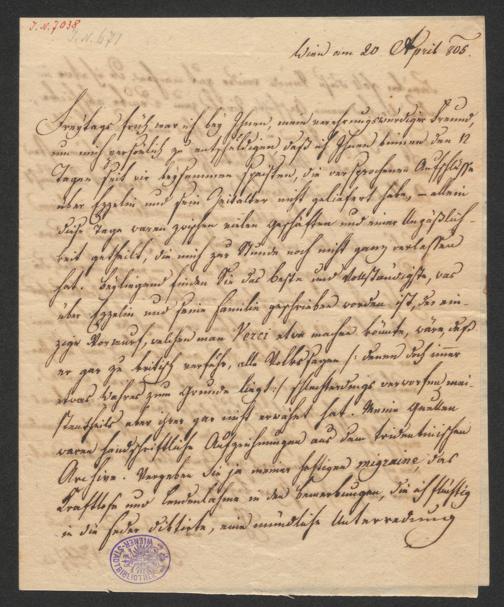 I.N. 7038
I.N. 671
Wien am 20 April 805.
Freytags früh war ich bey Ihnen, mein verehrungswürdiger Freund,
um mich persönlich zu entschuldigen, daß ich Ihnen binnen den 12
Tagen seit wir beysammen speisten, die versprochenen Aufschlüsse
über Ezzelin und sein Zeitalter nicht geliefert habe, – allein
diese Tage waren zwischen vielen Geschäften und einer Unpäßlich-
keit getheilt, die mich zur Stunde noch nicht ganz verlassen
hat. Beyliegend finden Sie das Beste und Vollständigste, was
über Ezzelin und seine Familie geschrieben worden ist, der ein-
zige Vorwurf, welchen man Verci etwa machen könnte, wäre, daß
er gar zu kritisch verfuhr, alle Volkssagen /: denen doch immer
etwas Wahres zum Grunde liegt :/ schlechterdings verworfen, mei-
stentheils aber ihrer gar nicht erwähnt hat. Meine Quellen
waren handschriftliche Aufzeichnungen aus dem tridentinischen
Archive. Vergeben Sie ja meiner heftigen migraine, das
Kraftlose und Lendenlahme in den Bemerkungen, die ich flüchtig
in die Feder dictirte, eine mündliche Unterredung
WIENER-STADTBIBLIOTHEK